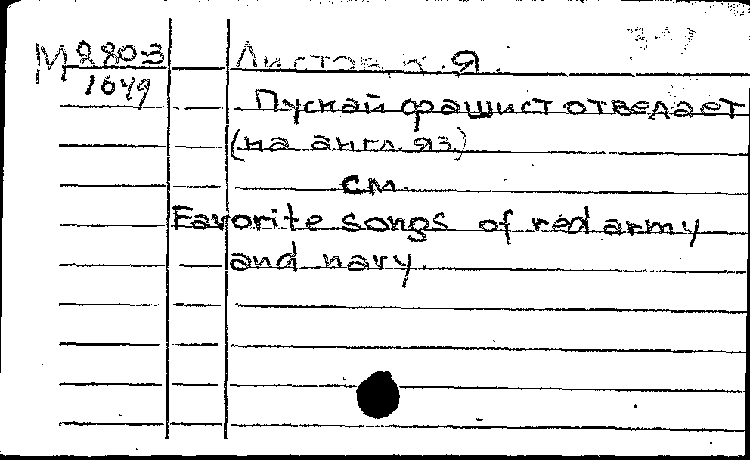 М 280-3
1649
Листов, К. Я.
Пускай фашист отведает
(на англ. яз.)
см.
Favorite songs of red army
and navy.